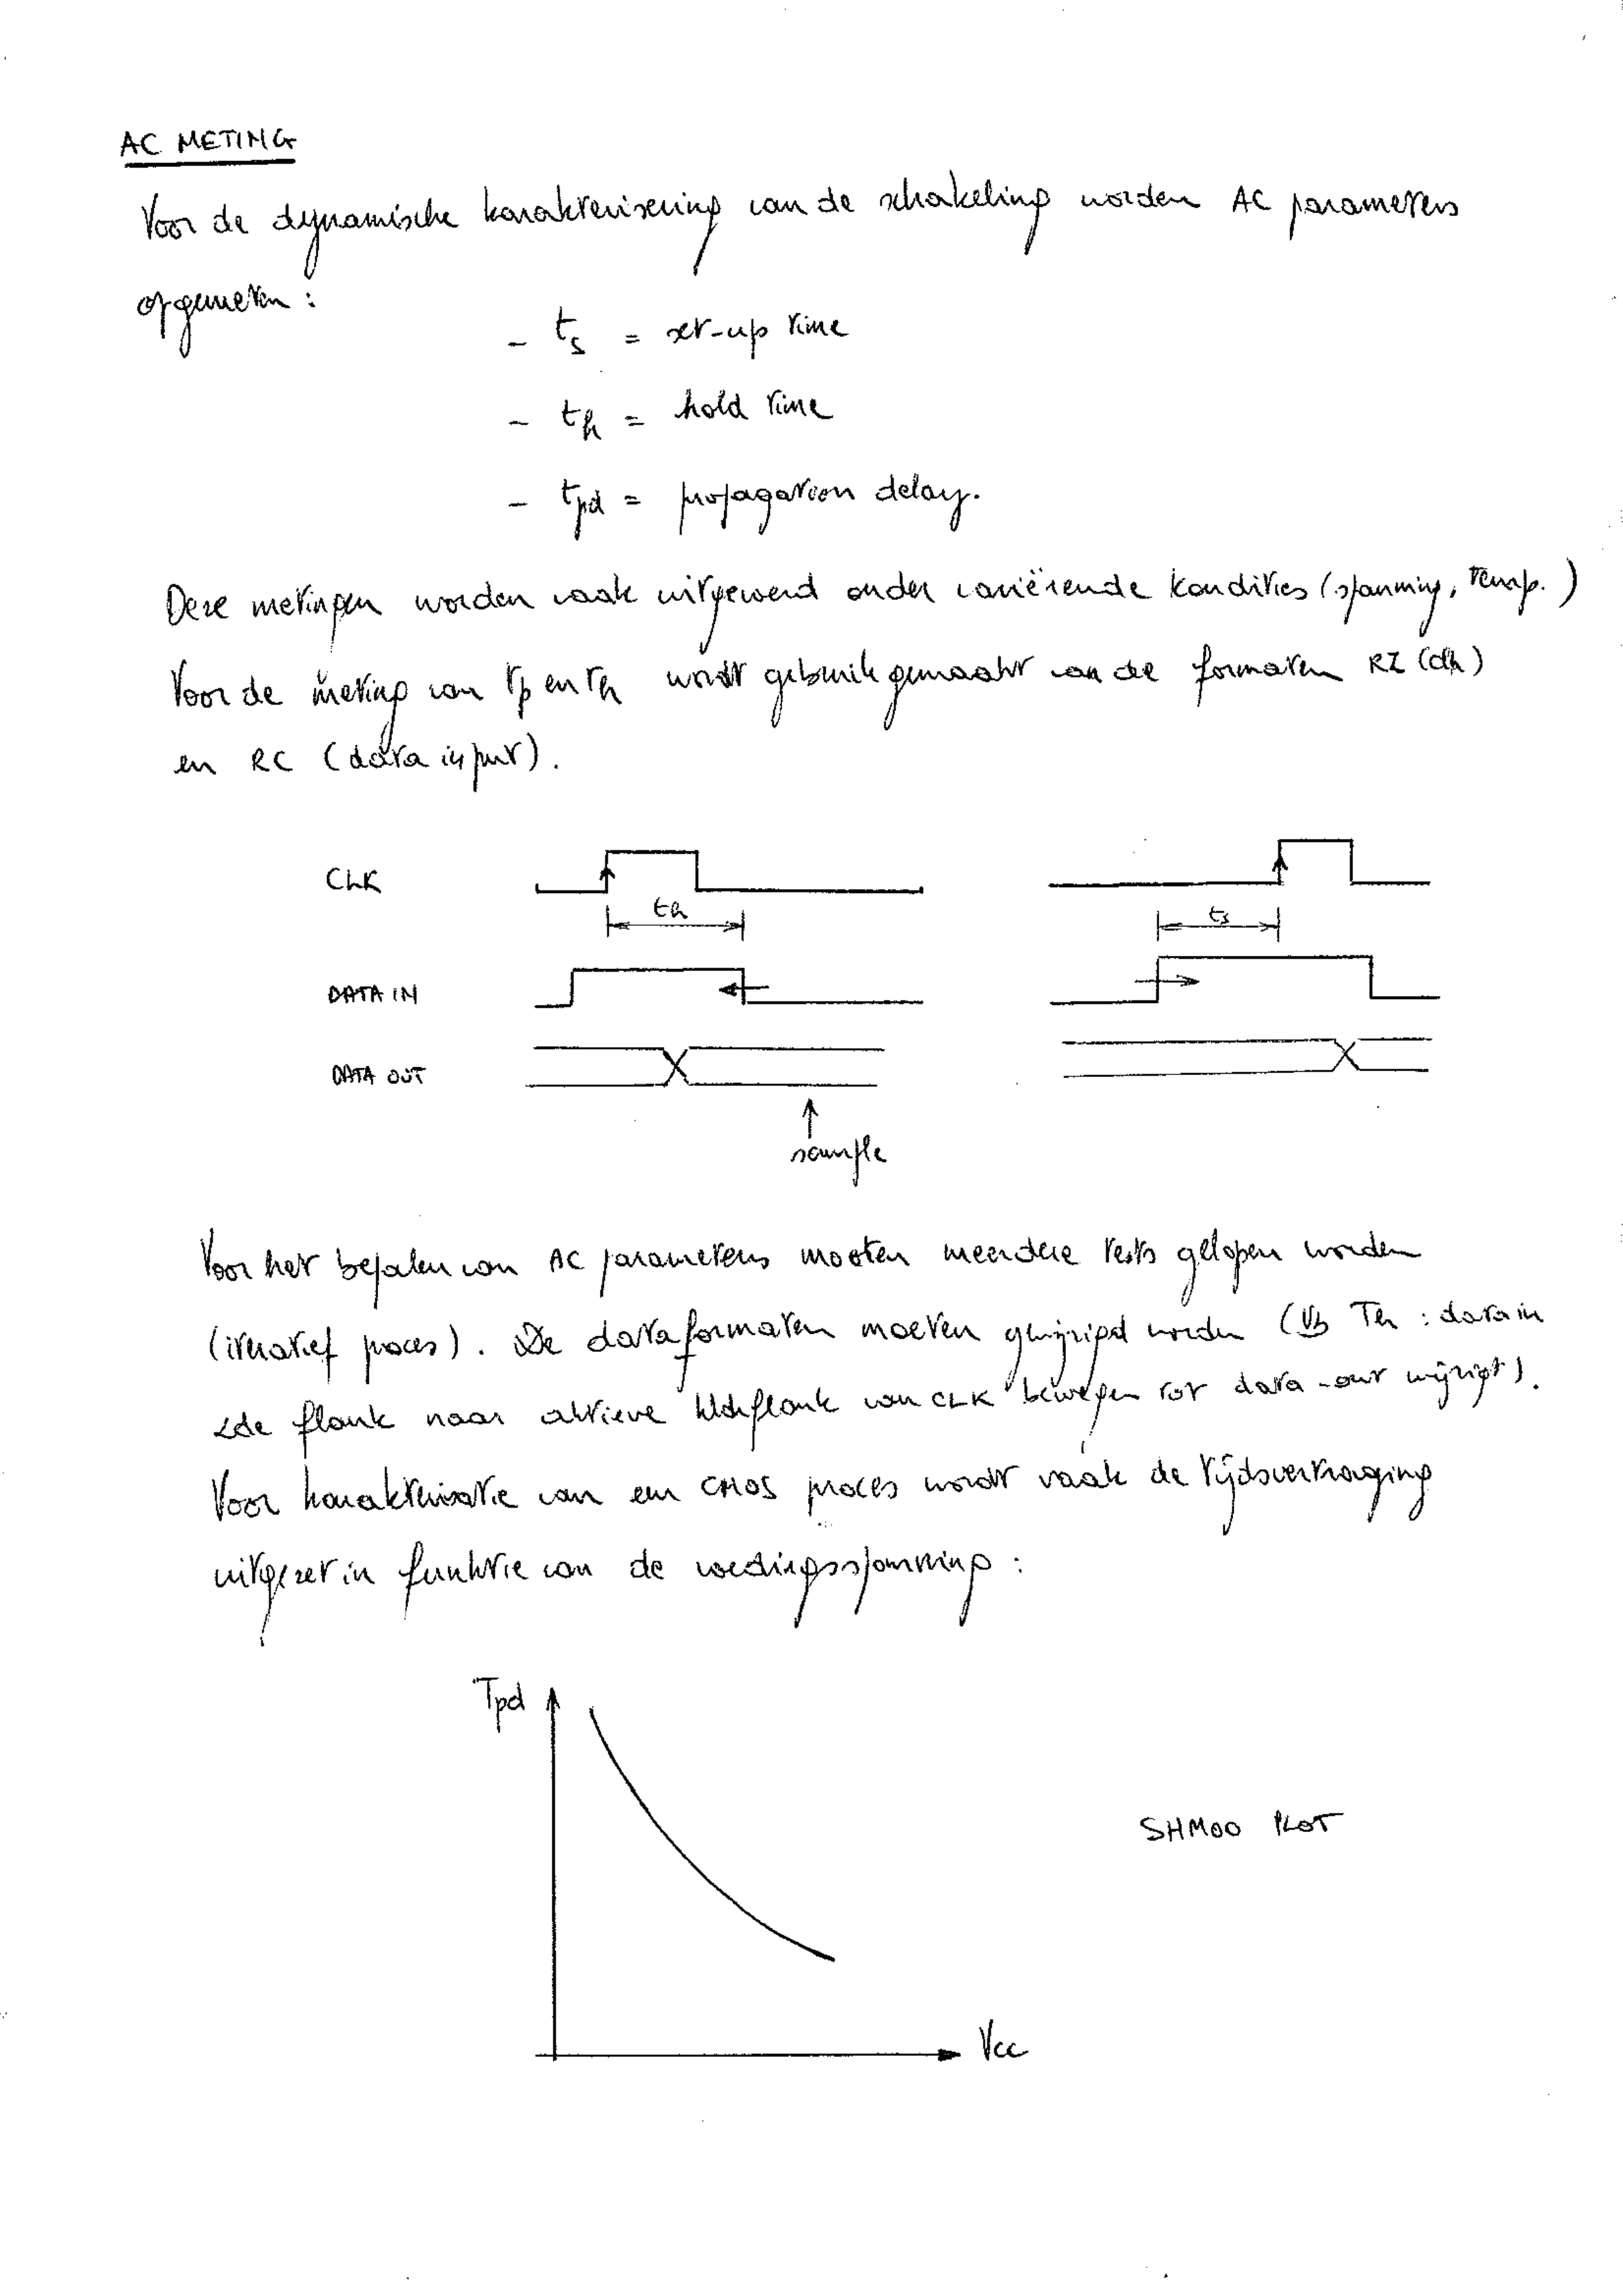 AC METING
Voor de dynamische karakterisering van de schakeling worden AC parameters
opgemeten :
- ts = set-up time
- th = hold time
- tpd = propagation delay.
Deze metingen worden vaak uitgevoerd onder variërende kondities (spanning, temp. )
Voor de meting van tp en th wordt gebruik gemaakt van de formaten RZ (clk)
en RC (data input).
CLK
th
ts
DATA IN
DATA OUT
sample
Voor het bepalen van AC parameters moeten meerdere tests gelopen worden
(iteratief proces). De dataformaten moeten gewijzigd worden (Vb Th : data in
2de flank naar aktieve klokflank van CLK bewegen tot data-out wijzigt).
Voor karakterisatie van een CMOS proces wordt vaak de tijdsvertraging
uitgezet in funktie van de voedingsspanning :
Tpd
SHMOO PLOT
Vcc